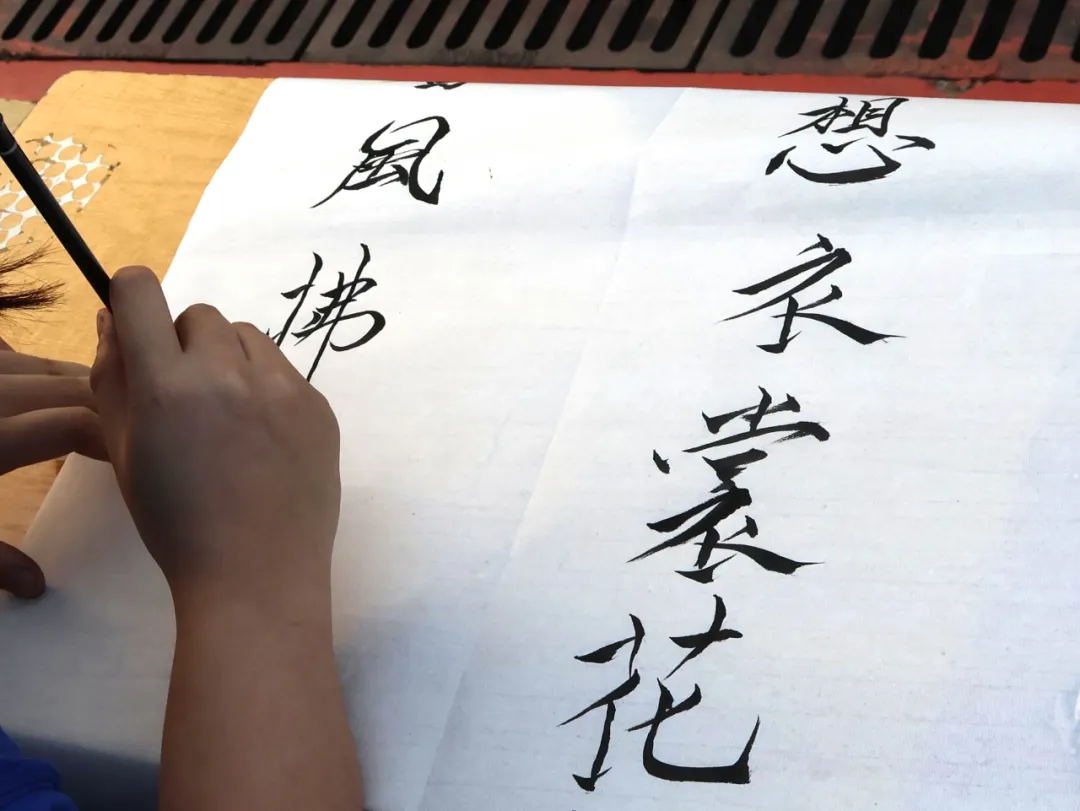 想衣裳花
風拂